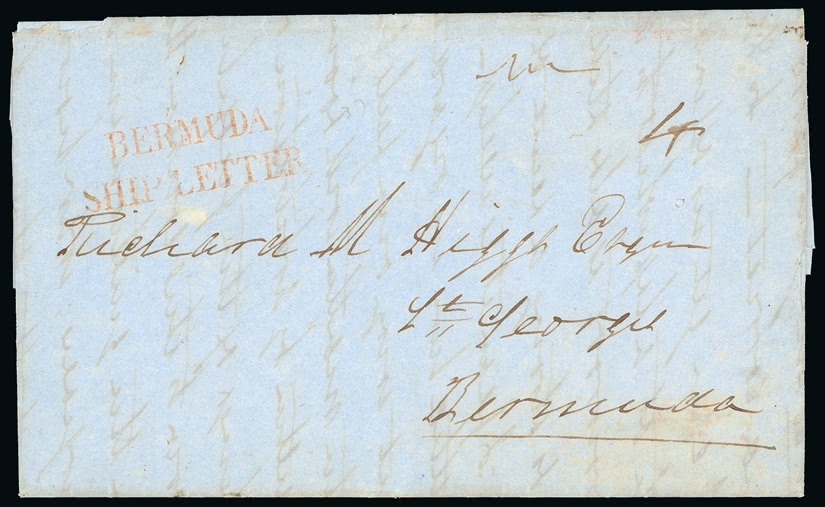 4
BERMUDA
SHIP LETTER
Richard M Higgs Esqr
St. Georges
Bermuda